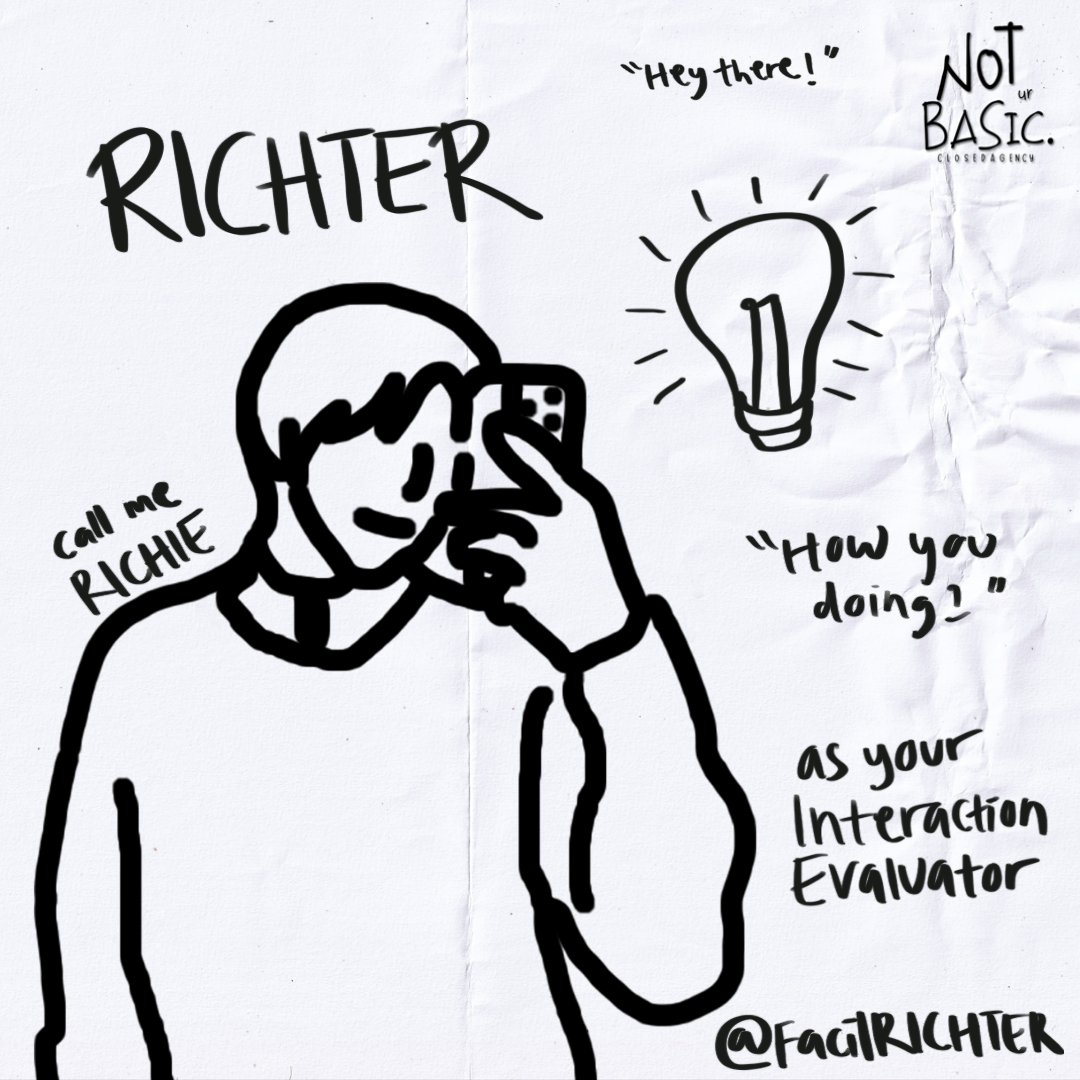 "Hey there!"
NOT
ur
BASIC.
CLOSEDAGENCY
RICHTER
call me
RICHIE
"How you
doing?"
as your
Interaction
Evaluator
@FacilRICHTER